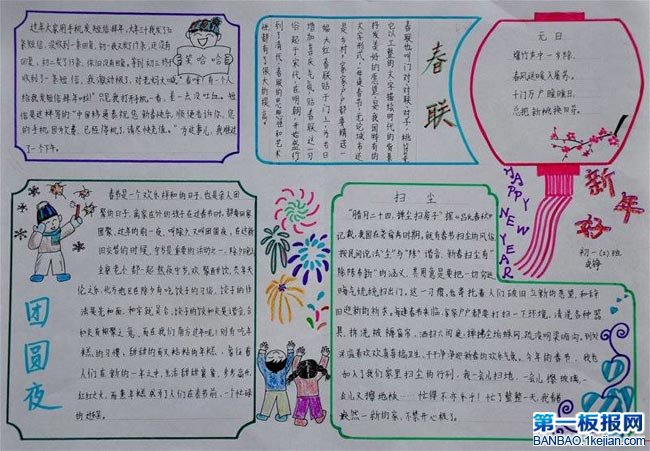 过年大家用手机发短信拜年,大年三十我发了几
条短信,没收到一条回复,初一我又发了几条,还没有
回复,初二发了几条,依旧没有回复,等到初三
收到了一条短信,我激动极了,对老妈大喊:
给我发短信拜年啦!"只见我打开手机一看,差一点没吐血。短
信是这样写的:"中国移通祝您新春快乐,顺便告诉你,您
的手机因为欠费,已经停机了,请尽快充值。"为这事儿,我郁闷
了一个下午。
笑哈哈
春联
春联也叫门对、对联、对子、桃符等,
它以工整
文字描绘时代背景
抒发美好的愿望,是我国特有的
文学形式,每逢春节,无论城市还
是乡村,家家户户都要精选一
幅大红春联贴于门上,为节日
增加喜庆气氛,贴春联这一习
俗起于宋代,在明朝开始盛行
到了清代,春联的思想性和艺术
性都有了很大的提高。
元日
爆竹声中一岁除,
春风送暖入屠苏。
千门万户曈曈日,
总把新桃换旧符。
HAPPY
NEW YEAR
新年好
初一(2)班
团圆夜
春节是一个欢乐祥和的日子,也是亲人团
聚的日子,离家在外的孩子在过春节时,都要回家
团聚,过年的前一夜,叫除夕又叫团圆夜,在这新
旧交替的时候,守岁是重要的活动之一,除夕晚上
全家老小都一起熬夜守岁,欢聚酣饮,共享天
伦之乐,北方地区在除夕有吃饺子的习俗,饺子的作
法是先和面,和字就是合,饺子的饺和交是谐音,合
和交有相聚之意,而在我们南方过年呢!则有吃年
糕的习惯,甜甜的而又粘粘的年糕,象征着
人们在新的一年之中,生活甜甜蜜蜜,步步高升,
红红火火,而蒸年糕成了人们在春节前,一个忙碌
的
扫尘
"腊月二十四,掸尘扫房子"据《吕氏春秋》
记载,我国在尧舜时期,就有春节扫尘的风俗
按民间说法"尘"与"陈"谐音,新春扫尘有"
除陈布新"的涵义,其用意是要把一切穷运
晦气统统扫出门,这一习惯,也寄托着人们破旧立新的愿望和辞
旧迎新的祈求,每逢春节来临,家家户户都要打扫一下环境,清洗各种器
具,拆洗被褥窗帘,洒扫六闾庭,掸拂尘垢蛛网,疏浚明渠暗沟,到处
洋溢着欢欢喜喜搞卫生,干干净净迎新春的欢乐气氛,今年的春节,我也
加入了我们家里扫尘的行列,我一会儿扫地,一会儿擦玻璃,一
会儿又擦地板……忙得不亦乐乎!忙了整整一天,我看
焕然一新的家,不禁开心极了。
第一板报网
BANBAO.1kejian.com